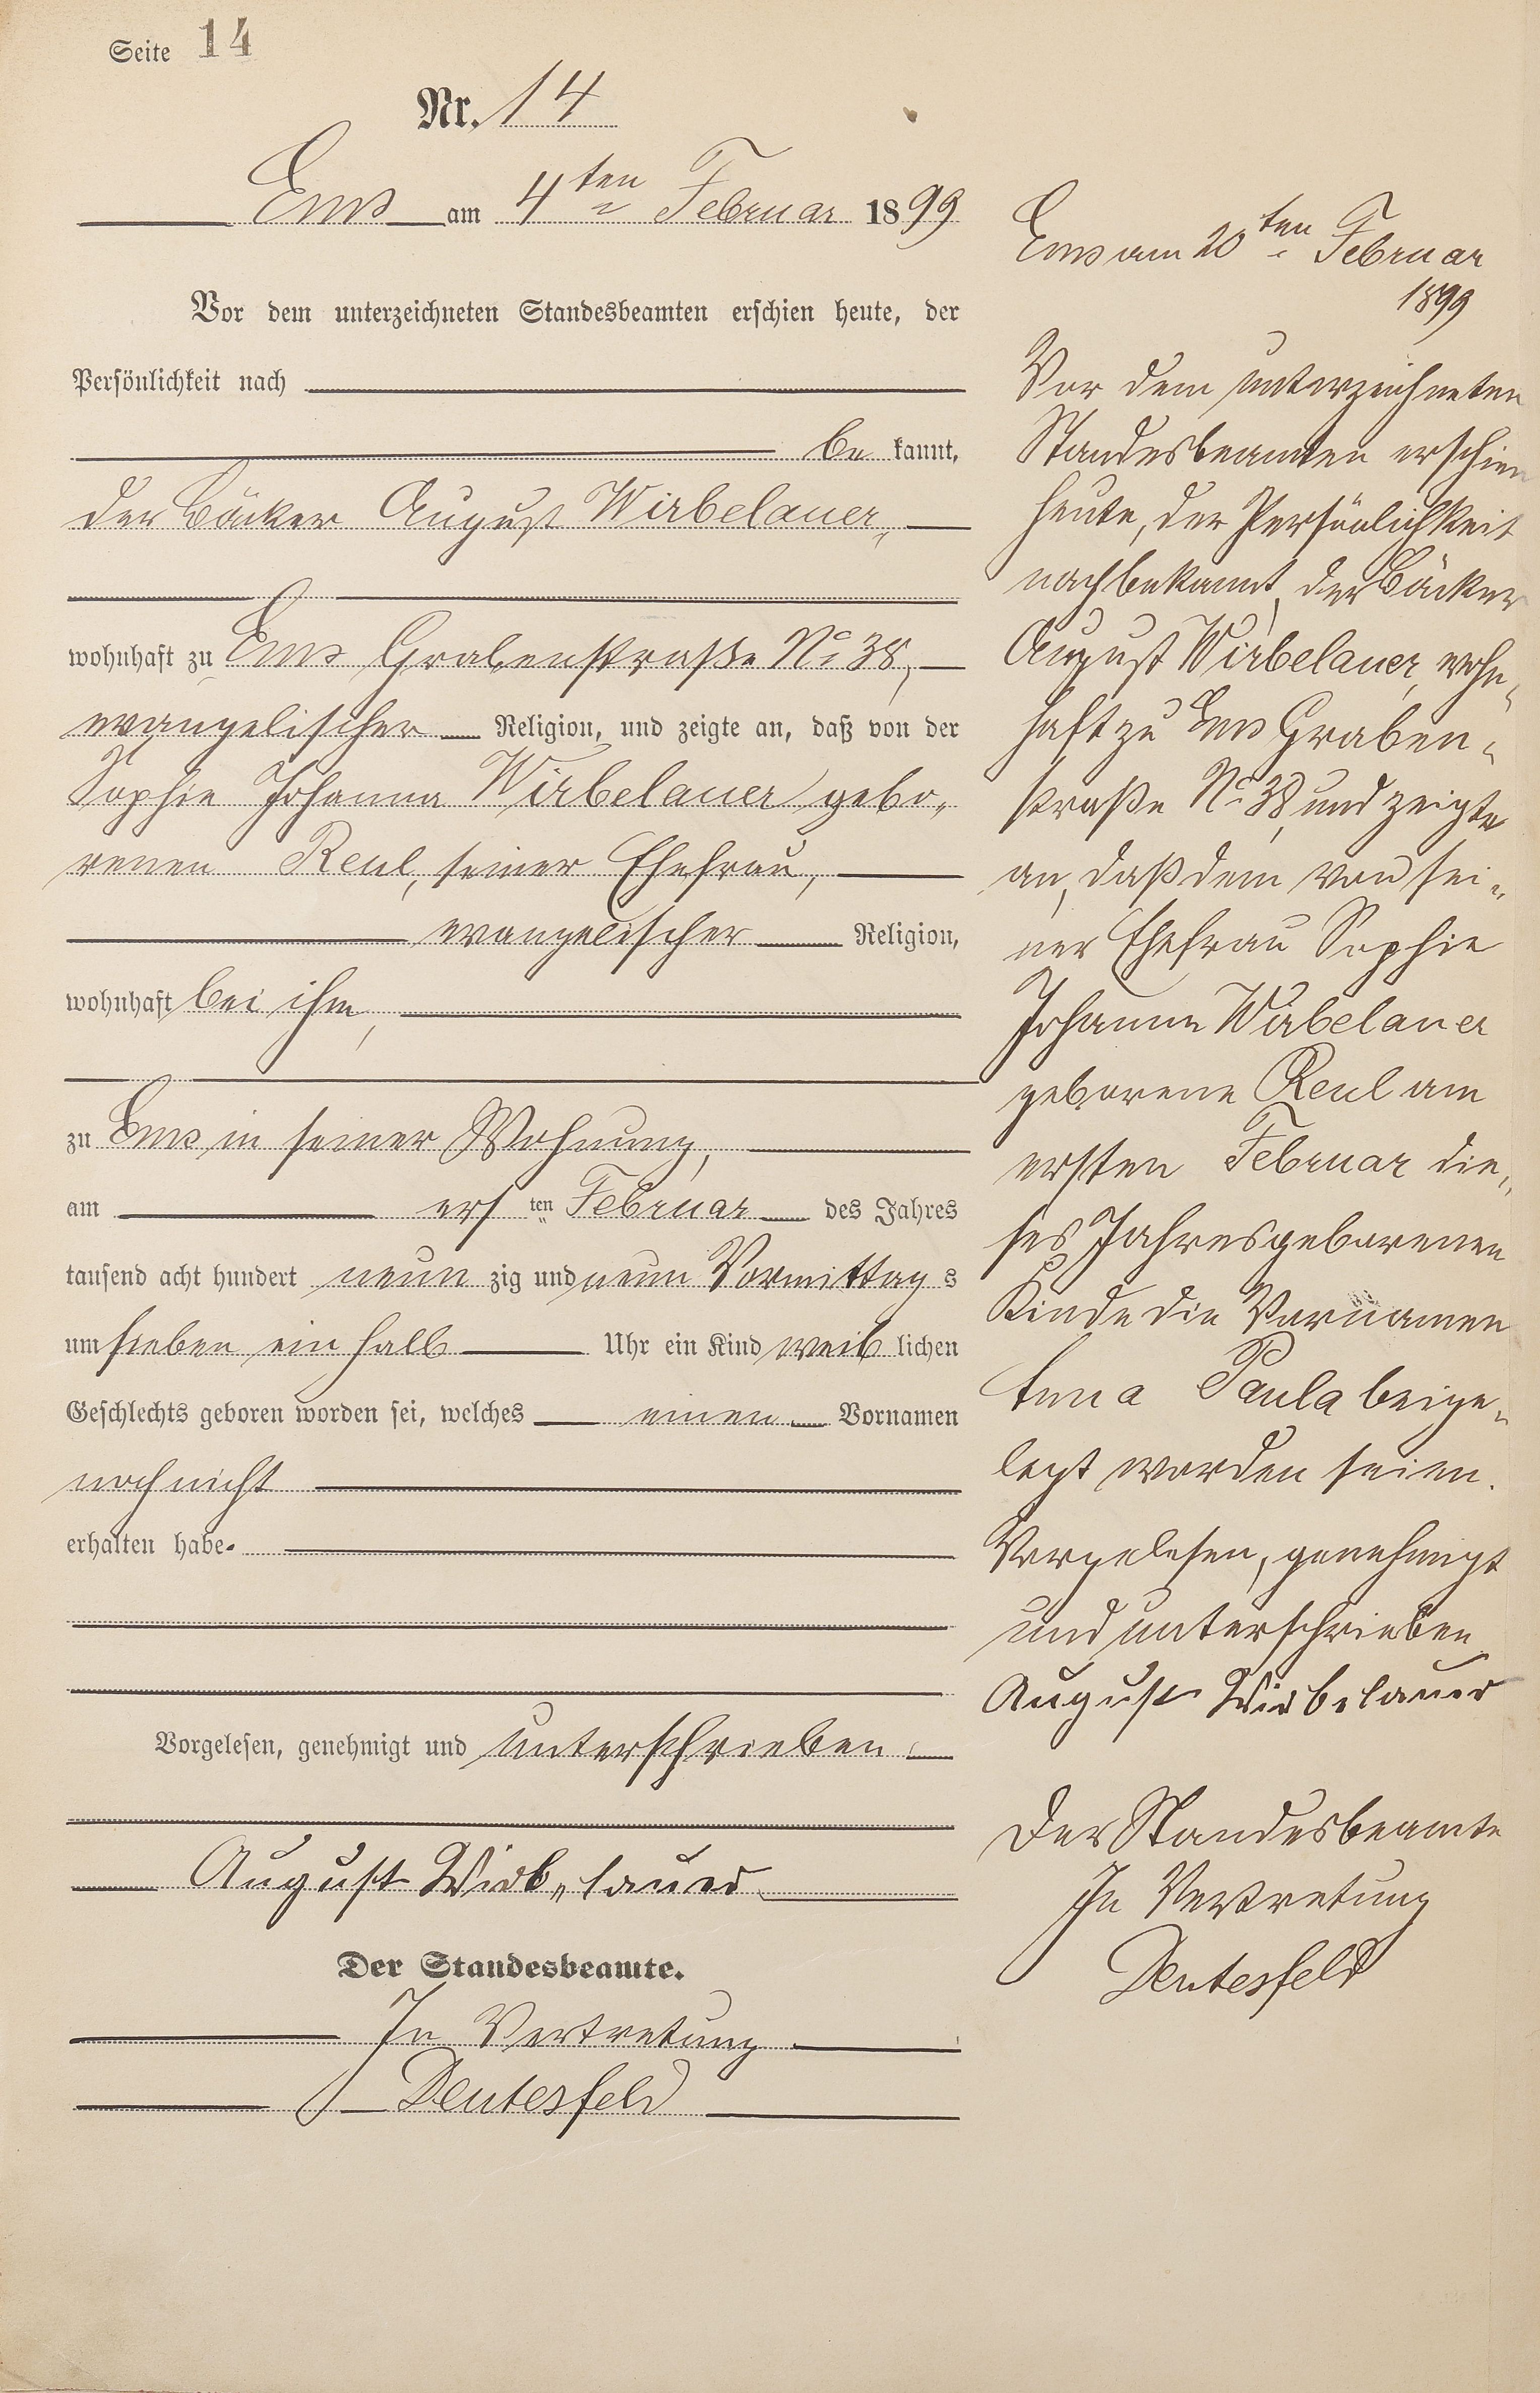 Seite 14
Nr. 14
Ems am 4ten Februar 1899
Vor dem unterzeichneten Standesbeamten erschien heute, der
Persönlichkeit nach
be kannt,
der Bäcker August Wirbelauer,
wohnhaft zu Ems Grabenstraße No 38,
evangelischer Religion, und zeigte an, daß von der
Sophie Johanna Wirbelauer gebo„
renen Reul, seiner Ehefrau,
evangelischer Religion,
wohnhaft bei ihm,
zu Ems in seiner Wohnung,
am ers ten Februar des Jahres
tausend acht hundert neun zig und neun Vormittag s
um sieben ein halb Uhr ein Kind weib lichen
Geschlechts geboren worden sei, welches einen Vornamen
noch nicht
erhalten habe.
Vorgelesen, genehmigt und unterschrieben.
August Wirbelauer
Der Standesbeamte.
In Vertretung
Deutesfeld
Ems am 20ten Februar
1899
Vor dem unterzeichneten
Standesbeamten erschien
heute, der Persönlichkeit
nach bekannt, der Bäcker
August Wirbelauer, wohn„
haft zu Ems Graben„
straße No 38, und zeigte
an, daß dem von sei„
ner Ehefrau Sophie
Johanna Wirbelauer
geborene Reul am
ersten Februar die„
ses Jahres geborenen
Kinde die Vornamen
Anna Paula beige„
legt worden seien.
Vorgelesen, genehmigt
und unterschrieben
August Wirbelauer
Der Standesbeamte
In Vertretung
Deutesfeld